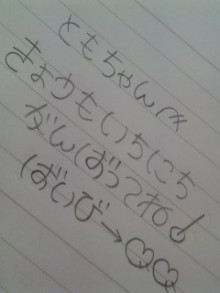 ともちゃんへ
きょうもいちにち
がんばってね!
ばいび→♡♡